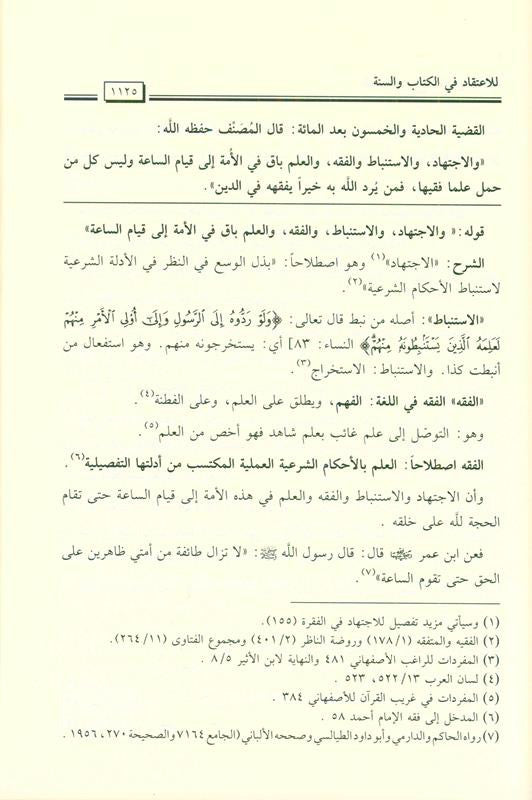 للاعتقاد في الكتاب والسنة
١١٢٥
القضية الحادية والخمسون بعد المائة: قال المُصَنِّف حفظه الله:
«والاجتهاد، والاستنباط والفقه، والعلم باق في الأُمة إلى قيام الساعة وليس كل من
حمل علما فقيها، فمن يُرد الله به خيراً يفقهه في الدين».
قوله: « والاجتهاد، والاستنباط، والفقه، والعلم باق في الأمة إلى قيام الساعة»
الشرح: «الاجتهاد»(١) وهو اصطلاحاً: «بذل الوسع في النظر في الأدلة الشرعية
لاستنباط الأحكام الشرعية»(٢).
«الاستنباط»: أصله من نبط قال تعالى: ﴿وَلَوْ رَدُّوهُ إِلَى ٱلرَّسُولِ وَإِلَىٰٓ أُو۟لِى ٱلْأَمْرِ مِنْهُمْ
لَعَلِمَهُ ٱلَّذِينَ يَسْتَنۢبِطُونَهُۥ مِنْهُمْ﴾ النساء: ٨٣] أي: يستخرجونه منهم. وهو استفعال من
أنبطت كذا. والاستنباط: الاستخراج(٣).
«الفقه» الفقه في اللغة: الفهم، ويطلق على العلم، وعلى الفطنة(٤).
وهو: التوصّل إلى علم غائب بعلم شاهد فهو أخص من العلم(٥).
الفقه اصطلاحاً: العلم بالأحكام الشرعية العملية المكتسب من أدلتها التفصيلية(٦).
وأن الاجتهاد والاستنباط والفقه والعلم في هذه الأمة إلى قيام الساعة حتى تقام
الحجة للَّه على خلقه .
فعن ابن عمر قال: قال رسول اللَّه ﷺ: «لا تزال طائفة من أمتي ظاهرين على
الحق حتى تقوم الساعة»(٧).
(١) وسيأتي مزيد تفصيل للاجتهاد في الفقرة (١٥٥).
(٢) الفقيه والمتفقه (١٧٨/١) وروضة الناظر (٤٠١/٢) ومجموع الفتاوى (٢٦٤/١١).
(٣) المفردات للراغب الأصفهاني ٤٨١ والنهاية لابن الأثير ٨/٥ .
(٤) لسان العرب ٥٢٢/١٣، ٥٢٣ .
(٥) المفردات في غريب القرآن للأصفهاني ٣٨٤ .
(٦) المدخل إلى فقه الإمام أحمد ٥٨ .
(٧) رواه الحاكم والدارمي وأبو داود الطيالسي وصححه الألباني (الجامع ٧١٦٤ والصحيحة ٢٧٠، ١٩٥٦ .